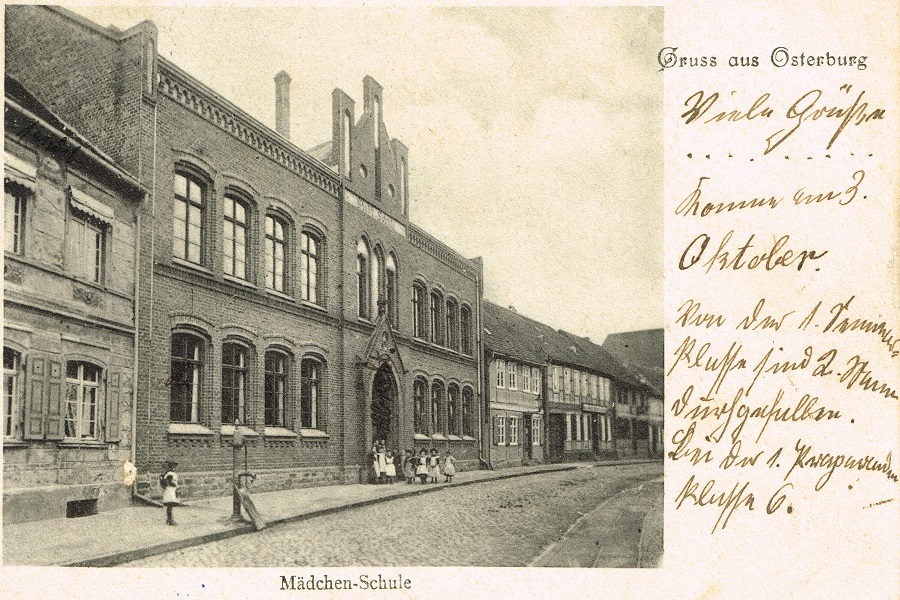 Gruss aus Osterburg
Viele Grüße
Komme am 3.
Oktober.
Von der 1. Seminar
klasse sind 2. Mann
durchgefallen.
Bei der 1. Präparanden
klasse 6.
Mädchen-Schule